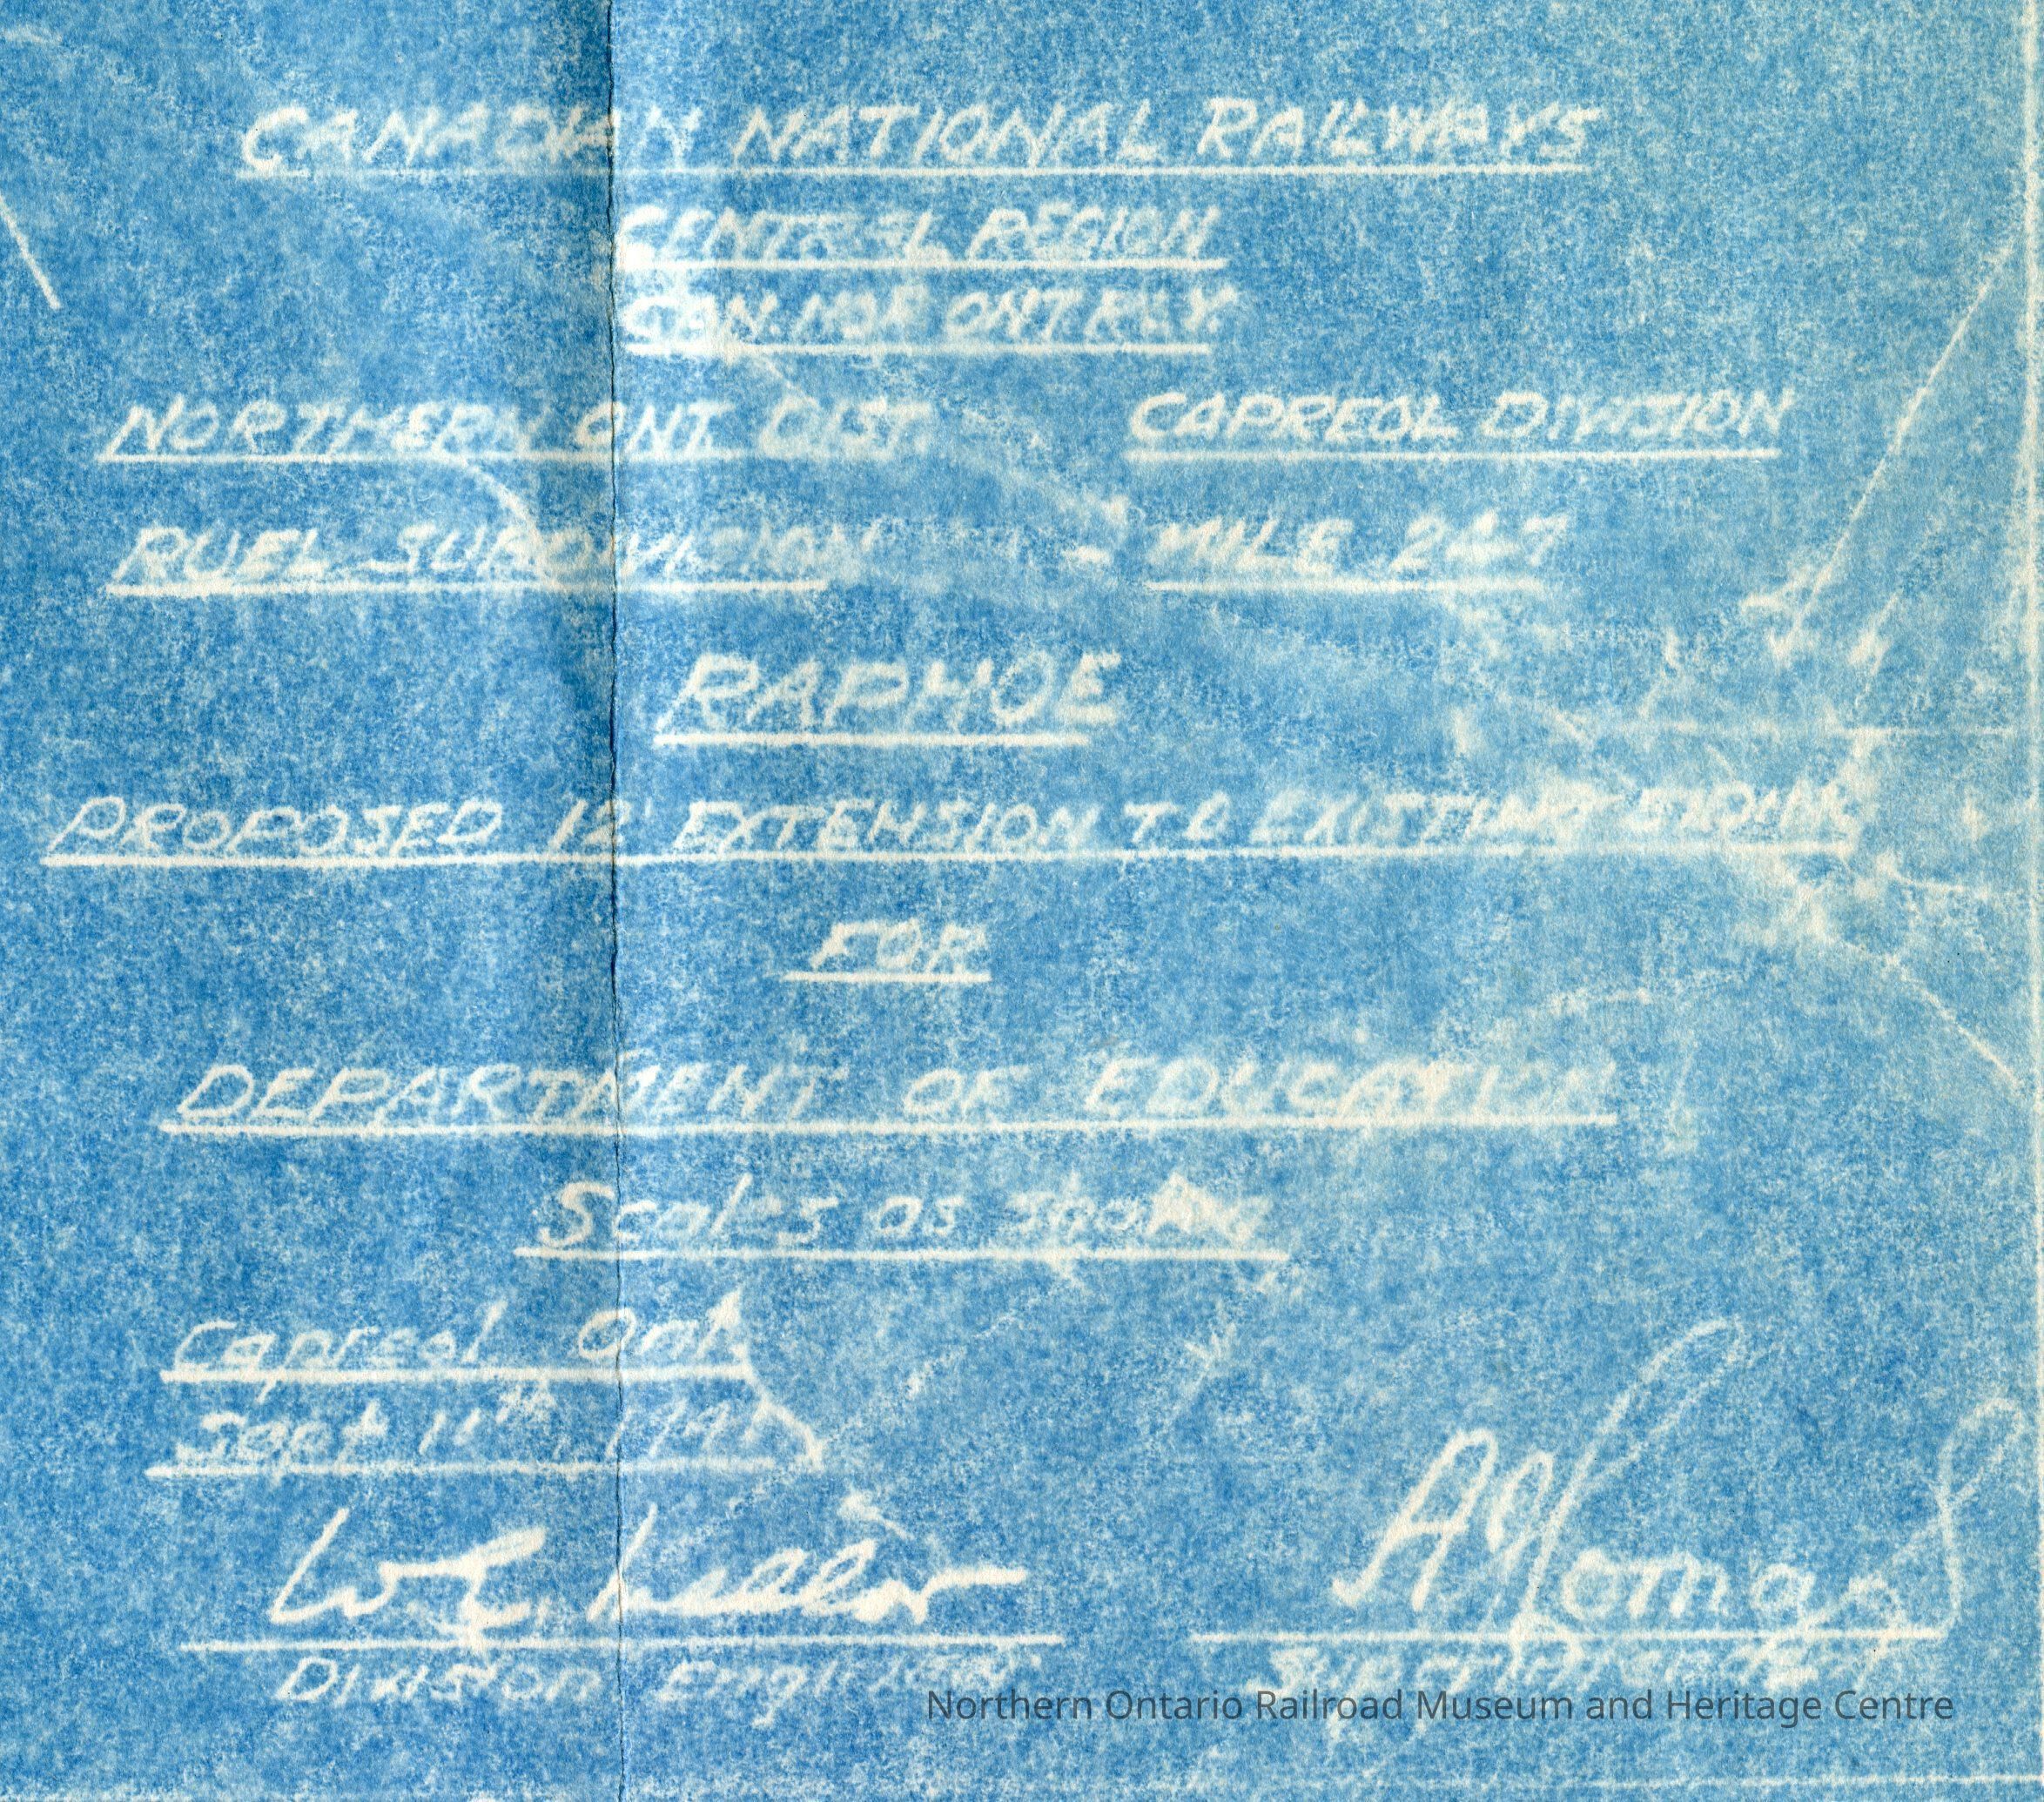 CANADIAN NATIONAL RAILWAYS
CENTRAL REGION
CAN. NOR ONT. RLY.
NORTHERN ONT. DIST. CAPREOL DIVISION
RUEL SUBDIVISION - MILE 24.7
RAPHOE
PROPOSED 12' EXTENSION TO EXISTING SIDING
FOR
DEPARTMENT OF EDUCATION
Scales as shown
Capreol Ont.
Sept 11th
W.E.
Division Engineer
Superintendent
Northern Ontario Railroad Museum and Heritage Centre